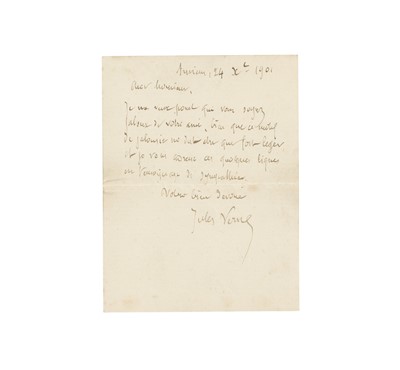 Amiens, 24 Xbre 1901
Cher Monsieur,
Je ne veux point que vous soyez
jaloux de votre ami, bien que ce motif
de jalousie ne doit être que fort léger
et je vous adresse ces quelques lignes
en témoignage de sympathie.
Votre bien dévoué
Jules Verne